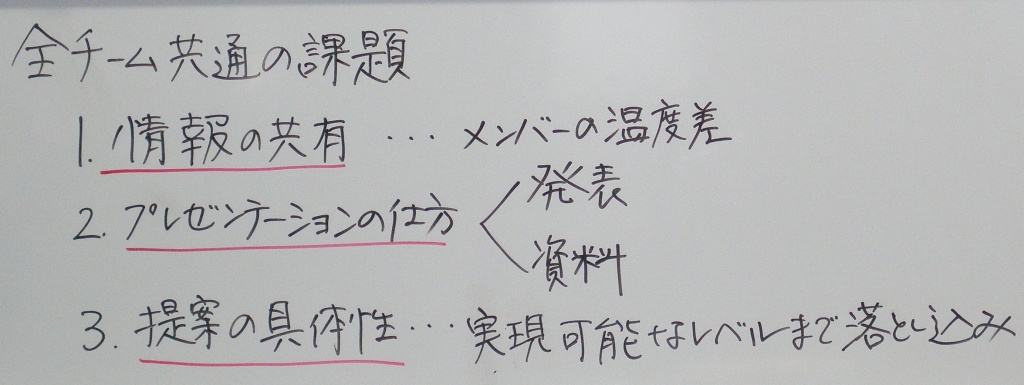 全チーム共通の課題
1. 情報の共有 ・・・ メンバーの温度差
2. プレゼンテーションの仕方 < 発表
資料
3. 提案の具体性・・・実現可能なレベルまで落とし込み